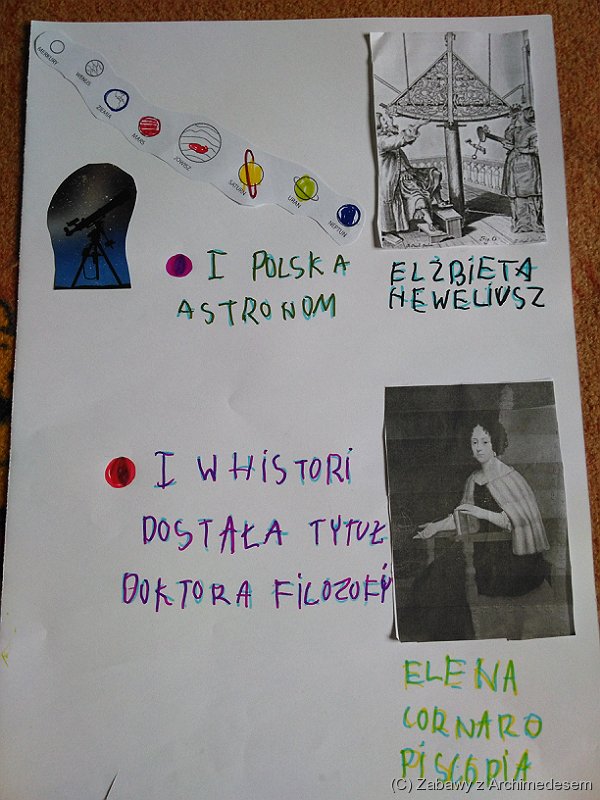 MERKURY
WENUS
ZIEMIA
MARS
JOWISZ
SATURN
URAN
NEPTUN
I POLSKA
ASTRONOM
ELŻBIETA
HEWELIUSZ
I W HISTORI
DOSTAŁA TYTUŁ
DOKTORA FILOZOFY
ELENA
CORNARO
PISCOPIA
(C) Zabawy z Archimedesem